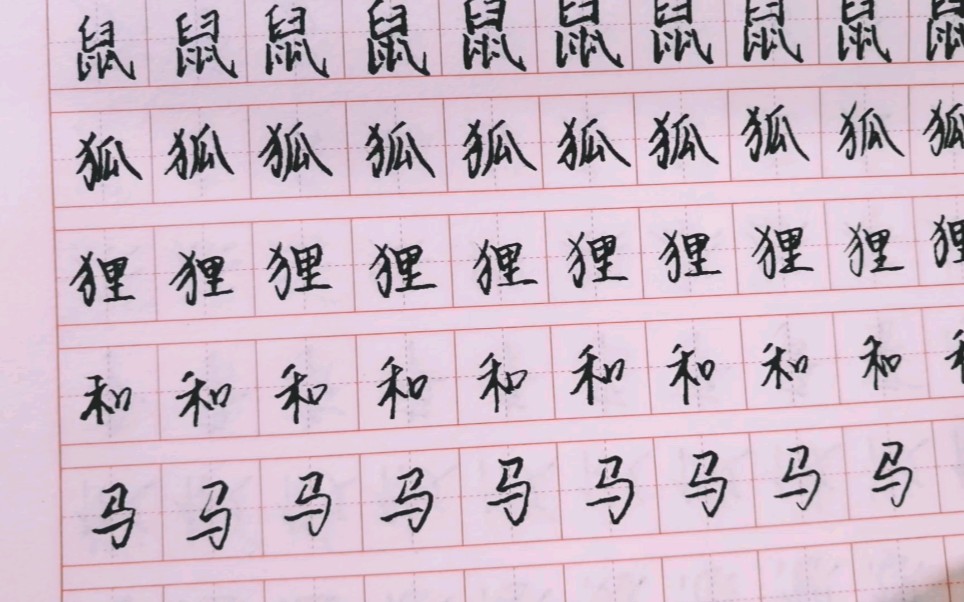 鼠鼠鼠鼠鼠鼠鼠鼠鼠鼠
狐狐狐狐狐狐狐狐狐狐
狸狸狸狸狸狸狸狸狸狸
和和和和和和和和和
马马马马马马马马马